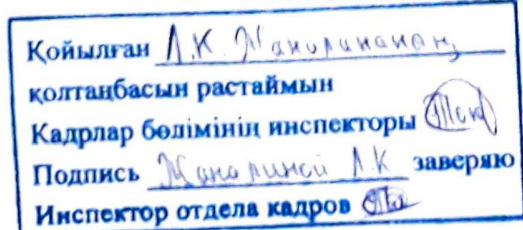 Қойылған Л.К.
қолтаңбасын растаймын
Кадрлар бөлімінің инспекторы
Подпись Л.К заверяю
Инспектор отдела кадров